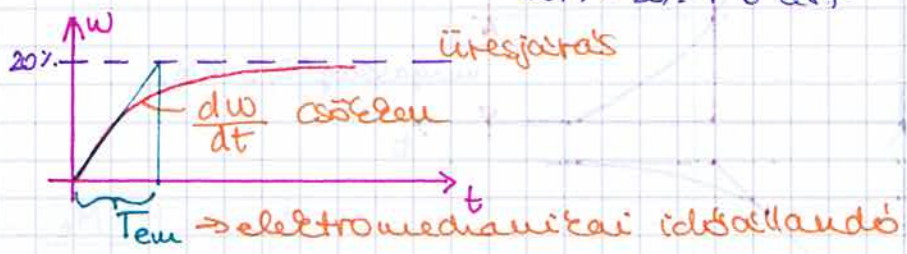 w
20%
üresjárás
dw/dt csökken
t
Tem → elektromechanikai időállandó